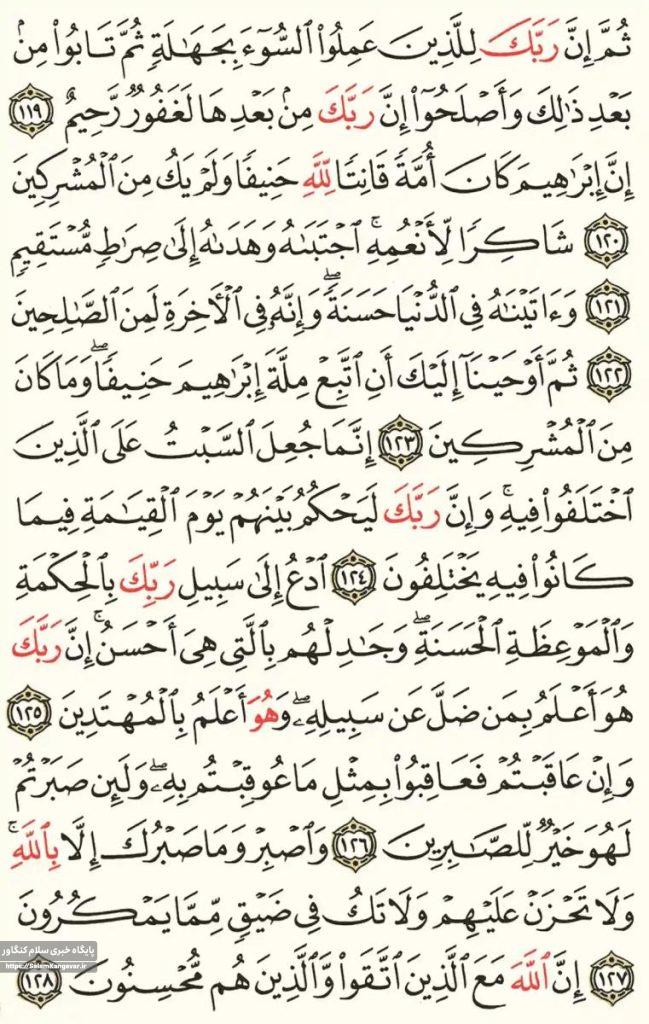 ثُمَّ إِنَّ رَبَّكَ لِلَّذِينَ عَمِلُوا۟ ٱلسُّوٓءَ بِجَهَٰلَةٍ ثُمَّ تَابُوا۟ مِنۢ
بَعْدِ ذَٰلِكَ وَأَصْلَحُوٓا۟ إِنَّ رَبَّكَ مِنۢ بَعْدِهَا لَغَفُورٌ رَّحِيمٌ ١١٩
إِنَّ إِبْرَٰهِيمَ كَانَ أُمَّةً قَانِتًا لِّلَّهِ حَنِيفًا وَلَمْ يَكُ مِنَ ٱلْمُشْرِكِينَ
١٢٠ شَاكِرًا لِّأَنْعُمِهِ ۚ ٱجْتَبَىٰهُ وَهَدَىٰهُ إِلَىٰ صِرَٰطٍ مُّسْتَقِيمٍ
١٢١ وَءَاتَيْنَٰهُ فِى ٱلدُّنْيَا حَسَنَةً ۖ وَإِنَّهُۥ فِى ٱلْأَخِرَةِ لَمِنَ ٱلصَّٰلِحِينَ
١٢٢ ثُمَّ أَوْحَيْنَآ إِلَيْكَ أَنِ ٱتَّبِعْ مِلَّةَ إِبْرَٰهِيمَ حَنِيفًا ۖ وَمَا كَانَ
مِنَ ٱلْمُشْرِكِينَ ١٢٣ إِنَّمَا جُعِلَ ٱلسَّبْتُ عَلَى ٱلَّذِينَ
ٱخْتَلَفُوا۟ فِيهِ ۚ وَإِنَّ رَبَّكَ لَيَحْكُمُ بَيْنَهُمْ يَوْمَ ٱلْقِيَٰمَةِ فِيمَا
كَانُوا۟ فِيهِ يَخْتَلِفُونَ ١٢٤ ٱدْعُ إِلَىٰ سَبِيلِ رَبِّكَ بِٱلْحِكْمَةِ
وَٱلْمَوْعِظَةِ ٱلْحَسَنَةِ ۖ وَجَٰدِلْهُم بِٱلَّتِى هِىَ أَحْسَنُ ۚ إِنَّ رَبَّكَ
هُوَ أَعْلَمُ بِمَن ضَلَّ عَن سَبِيلِهِۦ ۖ وَهُوَ أَعْلَمُ بِٱلْمُهْتَدِينَ ١٢٥
وَإِنْ عَاقَبْتُمْ فَعَاقِبُوا۟ بِمِثْلِ مَا عُوقِبْتُم بِهِۦ ۖ وَلَئِن صَبَرْتُمْ
لَهُوَ خَيْرٌ لِّلصَّٰبِرِينَ ١٢٦ وَٱصْبِرْ وَمَا صَبْرُكَ إِلَّا بِٱللَّهِ ۚ
وَلَا تَحْزَنْ عَلَيْهِمْ وَلَا تَكُ فِى ضَيْقٍ مِّمَّا يَمْكُرُونَ
١٢٧ إِنَّ ٱللَّهَ مَعَ ٱلَّذِينَ ٱتَّقَوا۟ وَّٱلَّذِينَ هُم مُّحْسِنُونَ ١٢٨
پایگاه خبری سلام کنگاور
https://SalamKangavar.ir